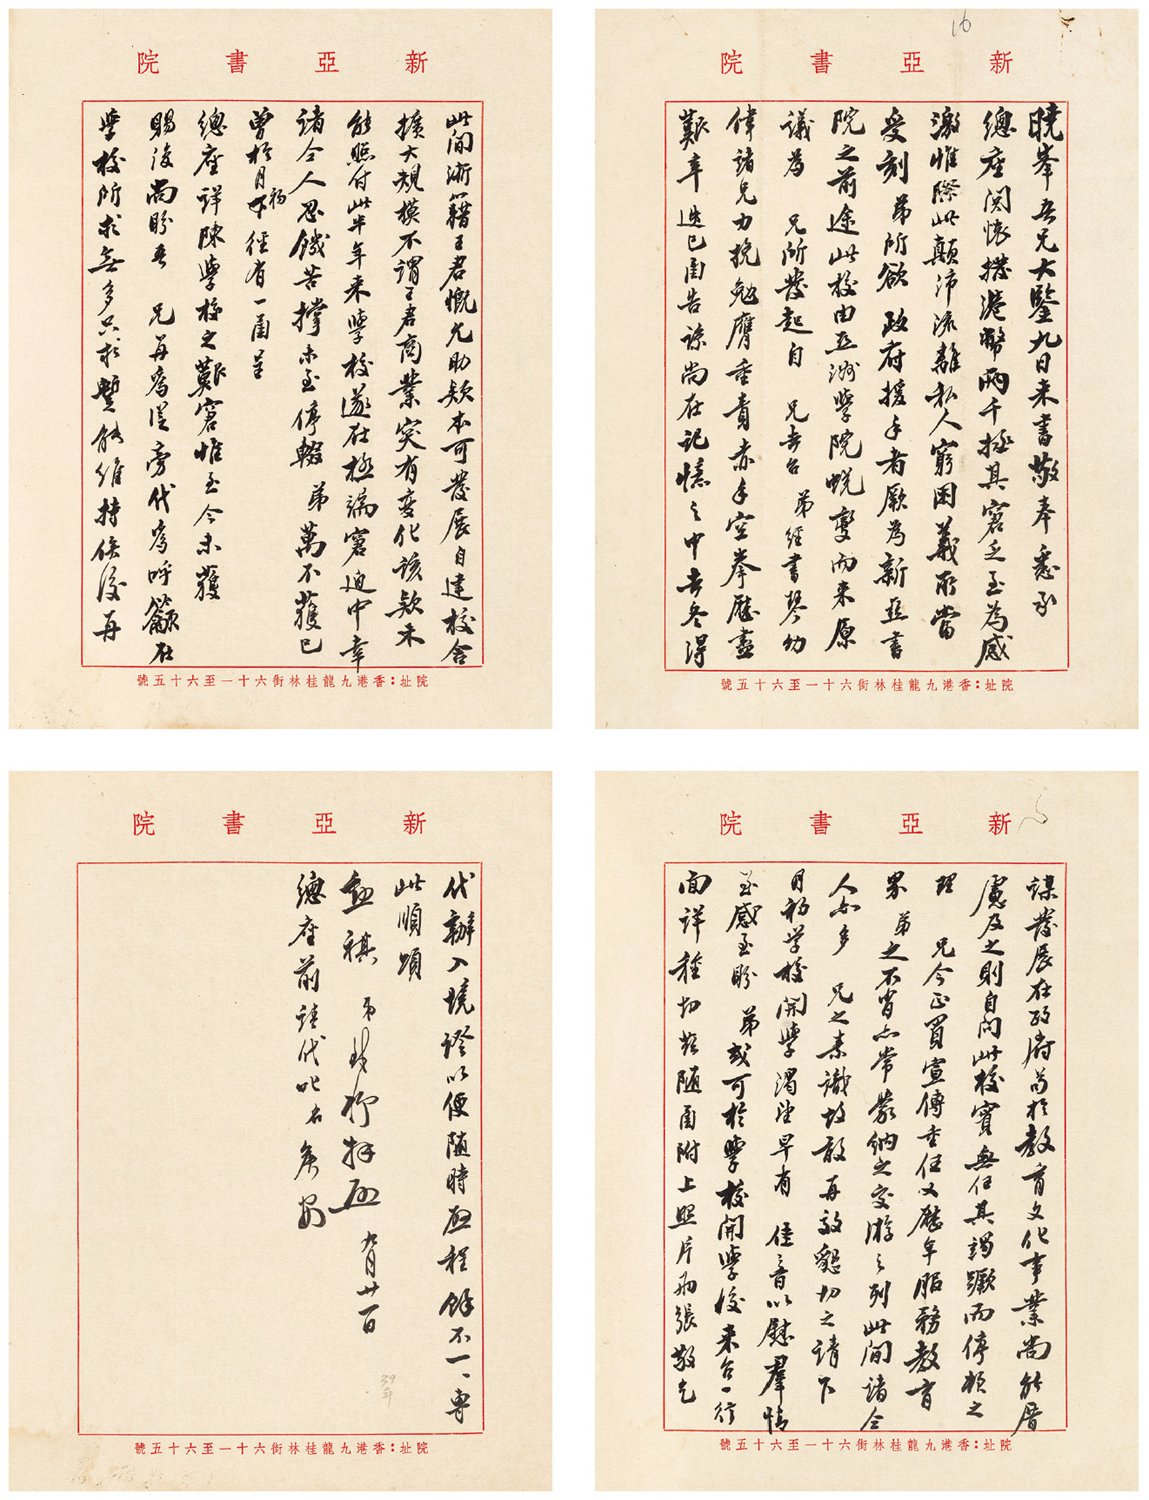 新亞書院
曉峯吾兄大鑒九日來書敬奉悉承
總座関懷撥港幣兩千拯其窘乏至為感
激惟際此顛沛流離私人窮困義所當
受刻弟所欲 政府援手者厥為新亞書
院之前途此校由亞洲學院蛻變而來原
議為 兄所發起自 兄去台 弟經書琴幼
偉諸兄力挽勉膺重責赤手空拳歷盡
艱辛迭已函告諒尚在記憶之中去冬得
院址：香港九龍桂林街六十一至六十五號
新亞書院
此間浙籍王君慨允助款本可發展自建校舍
擴大規模不謂王君商業突有變化該款未
能照付此半年來學校遂在極端窘迫中幸
諸仝人忍饑苦撐未至停輟 弟萬不獲已
曾於月初徑有一函呈
總座詳陳學校之艱窘惟至今未獲
賜復尚盼吾 兄再為從旁代為呼籲在
學校所求無多只求暫能維持俟後再
院址：香港九龍桂林街六十一至六十五號
新亞書院
謀發展在政府苟於教育文化事業尚能厝
慮及之則自問此校實無任其竭蹶而停頓之
理 兄今正負宣傳重任又歷年服務教育
界 弟之不肖亦常蒙納之交游之列此間諸仝
人亦多 兄之素識故敢再效懇切之請下
月初學校開學渴望早有 佳音以慰羣情
至感至盼 弟或可於學校開學後來台一行
面詳種切茲隨函附上照片兩張敬乞
院址：香港九龍桂林街六十一至六十五號
新亞書院
代辦入境證以便隨時啟程餘不一一專
此順頌
勛祺 弟錢穆拜啟 九月廿一日
總座前請代叱名候安
39年
院址：香港九龍桂林街六十一至六十五號